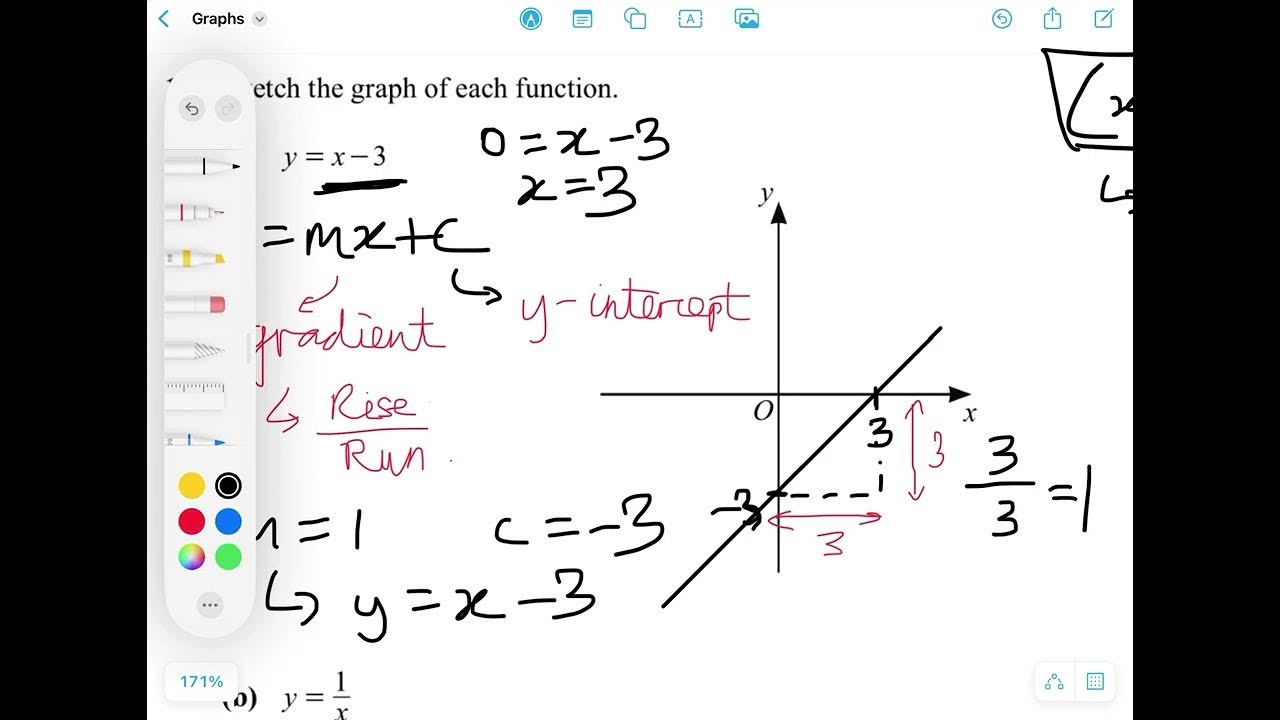 Graphs
etch the graph of each function.
y = x − 3
0 = x − 3
x = 3
= mx + c
y-intercept
gradient
Rise
Run
= 1
c = −3
y = x − 3
y
O
x
3
−3
3
3
3
3
= 1
(x
171%
(b) y = 1
x
A
80